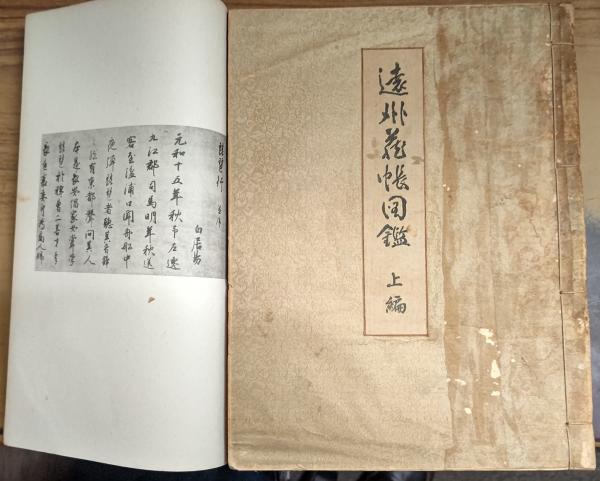 遠州蔵帳図鑑
上編
琵琶行 并序
白居易
元和十五年秋予左遷
九江郡司馬明年秋送
客至湓浦口聞舟船中
夜弾琵琶者聴其音錚
錚有京都聲問其人
本是長安倡家女嘗学
琵琶於穆曹二善才年
長色衰委身為賈人婦